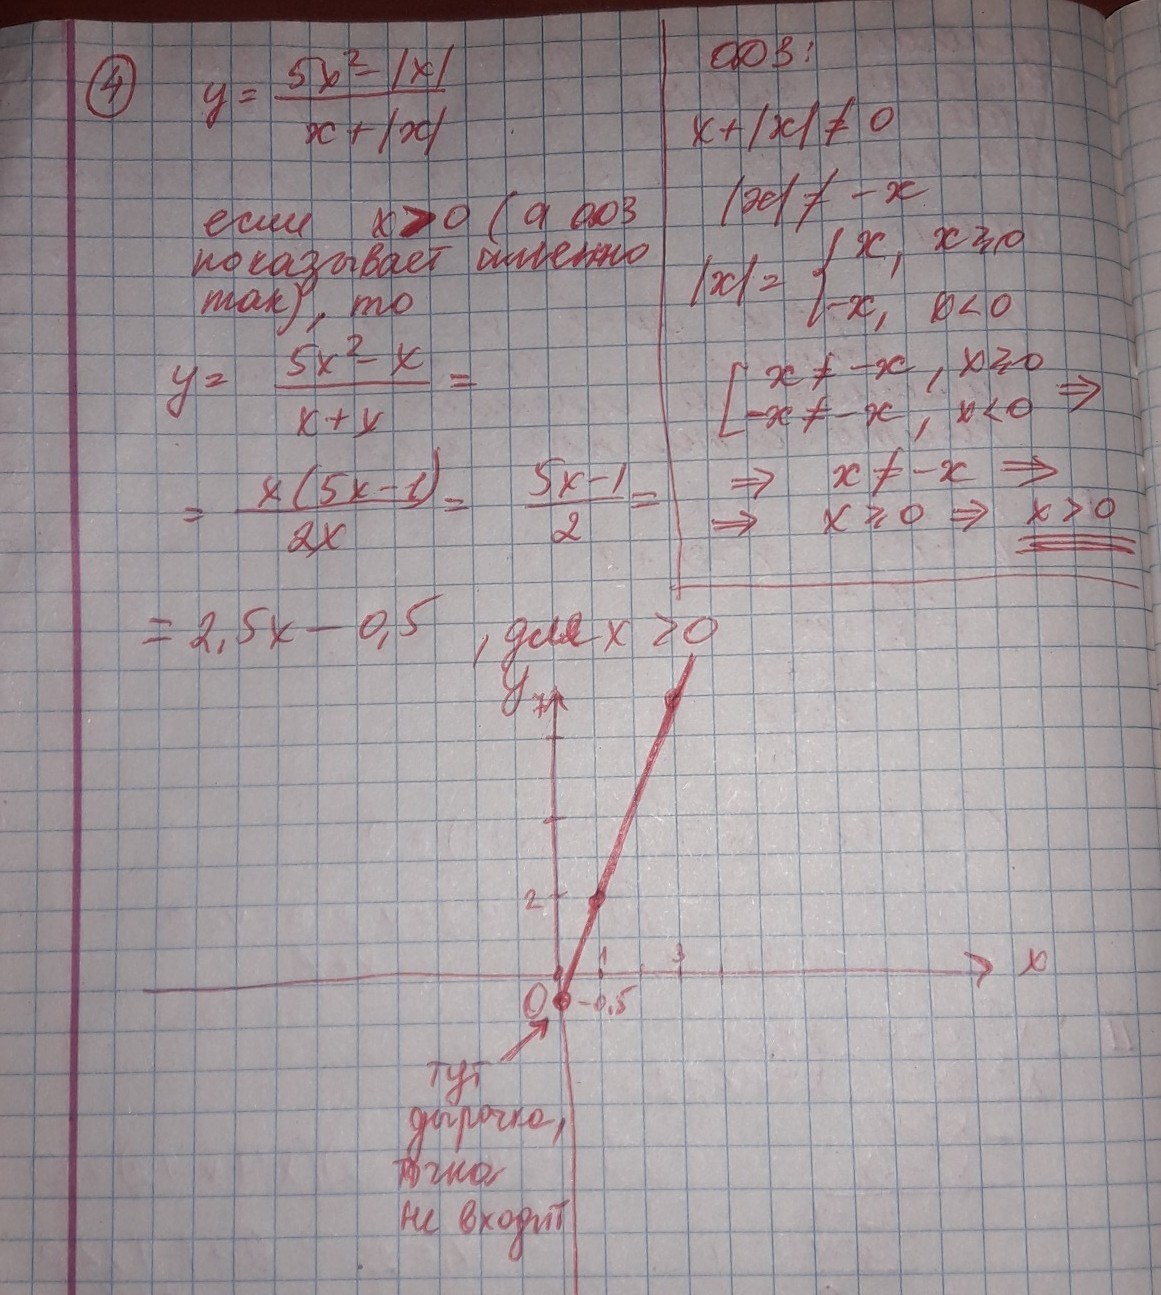 ④ y = (5x² - |x|) / (x + |x|)
если x > 0 (а ОДЗ
показывает именно
так), то
y = (5x² - x) / (x + x) =
= x(5x - 1) / 2x = (5x - 1) / 2 =
ОДЗ:
x + |x| ≠ 0
|x| ≠ -x
|x| = { x, x ≥ 0
-x, x < 0
[ x ≠ -x, x ≥ 0
-x ≠ -x, x < 0 ⇒
⇒ x ≠ -x ⇒
⇒ x ≥ 0 ⇒ x > 0
= 2,5x - 0,5 , для x > 0
y
7
2
1 3 x
0 -0,5
тут
дырочка,
точка
не входит